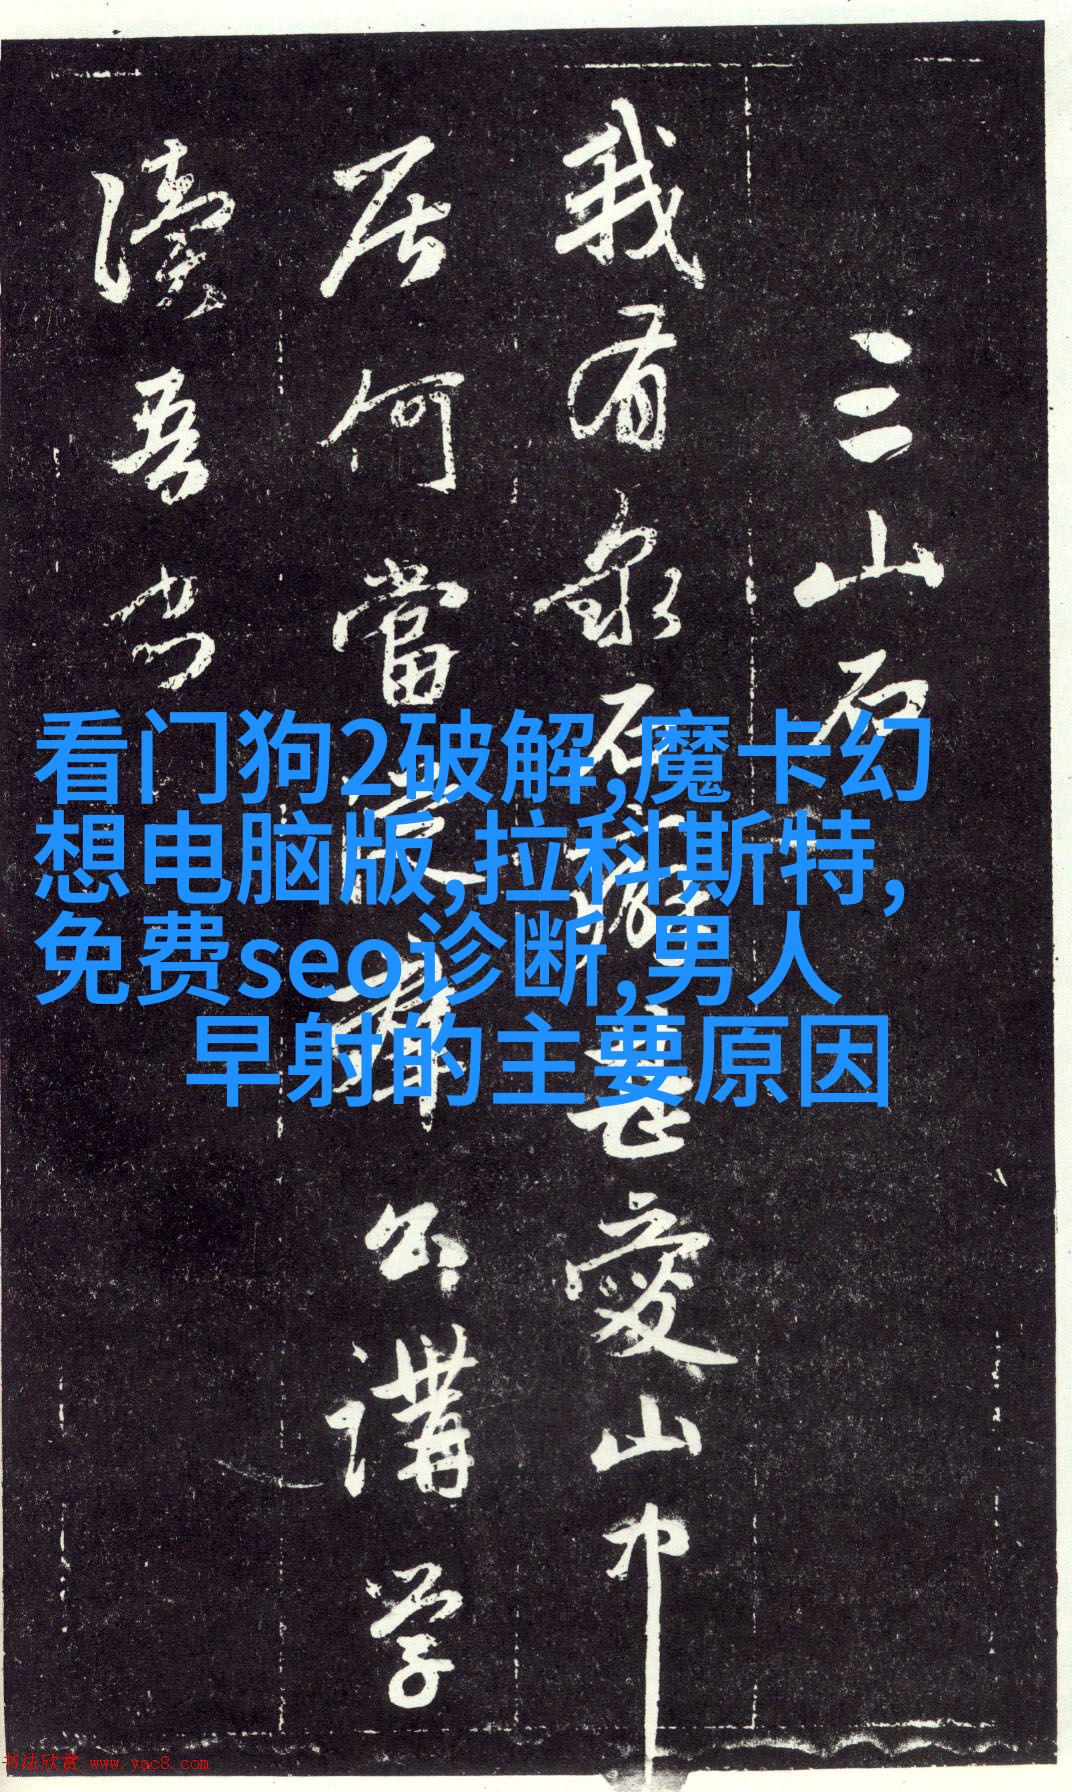 三山石
我有泉石癖甚愛山中
居何當從諸公講学
讀吾書
看门狗2破解,魔卡幻
想电脑版,拉科斯特,
免费seo诊断,男人
早射的主要原因
书法欣赏 www.yac8.com